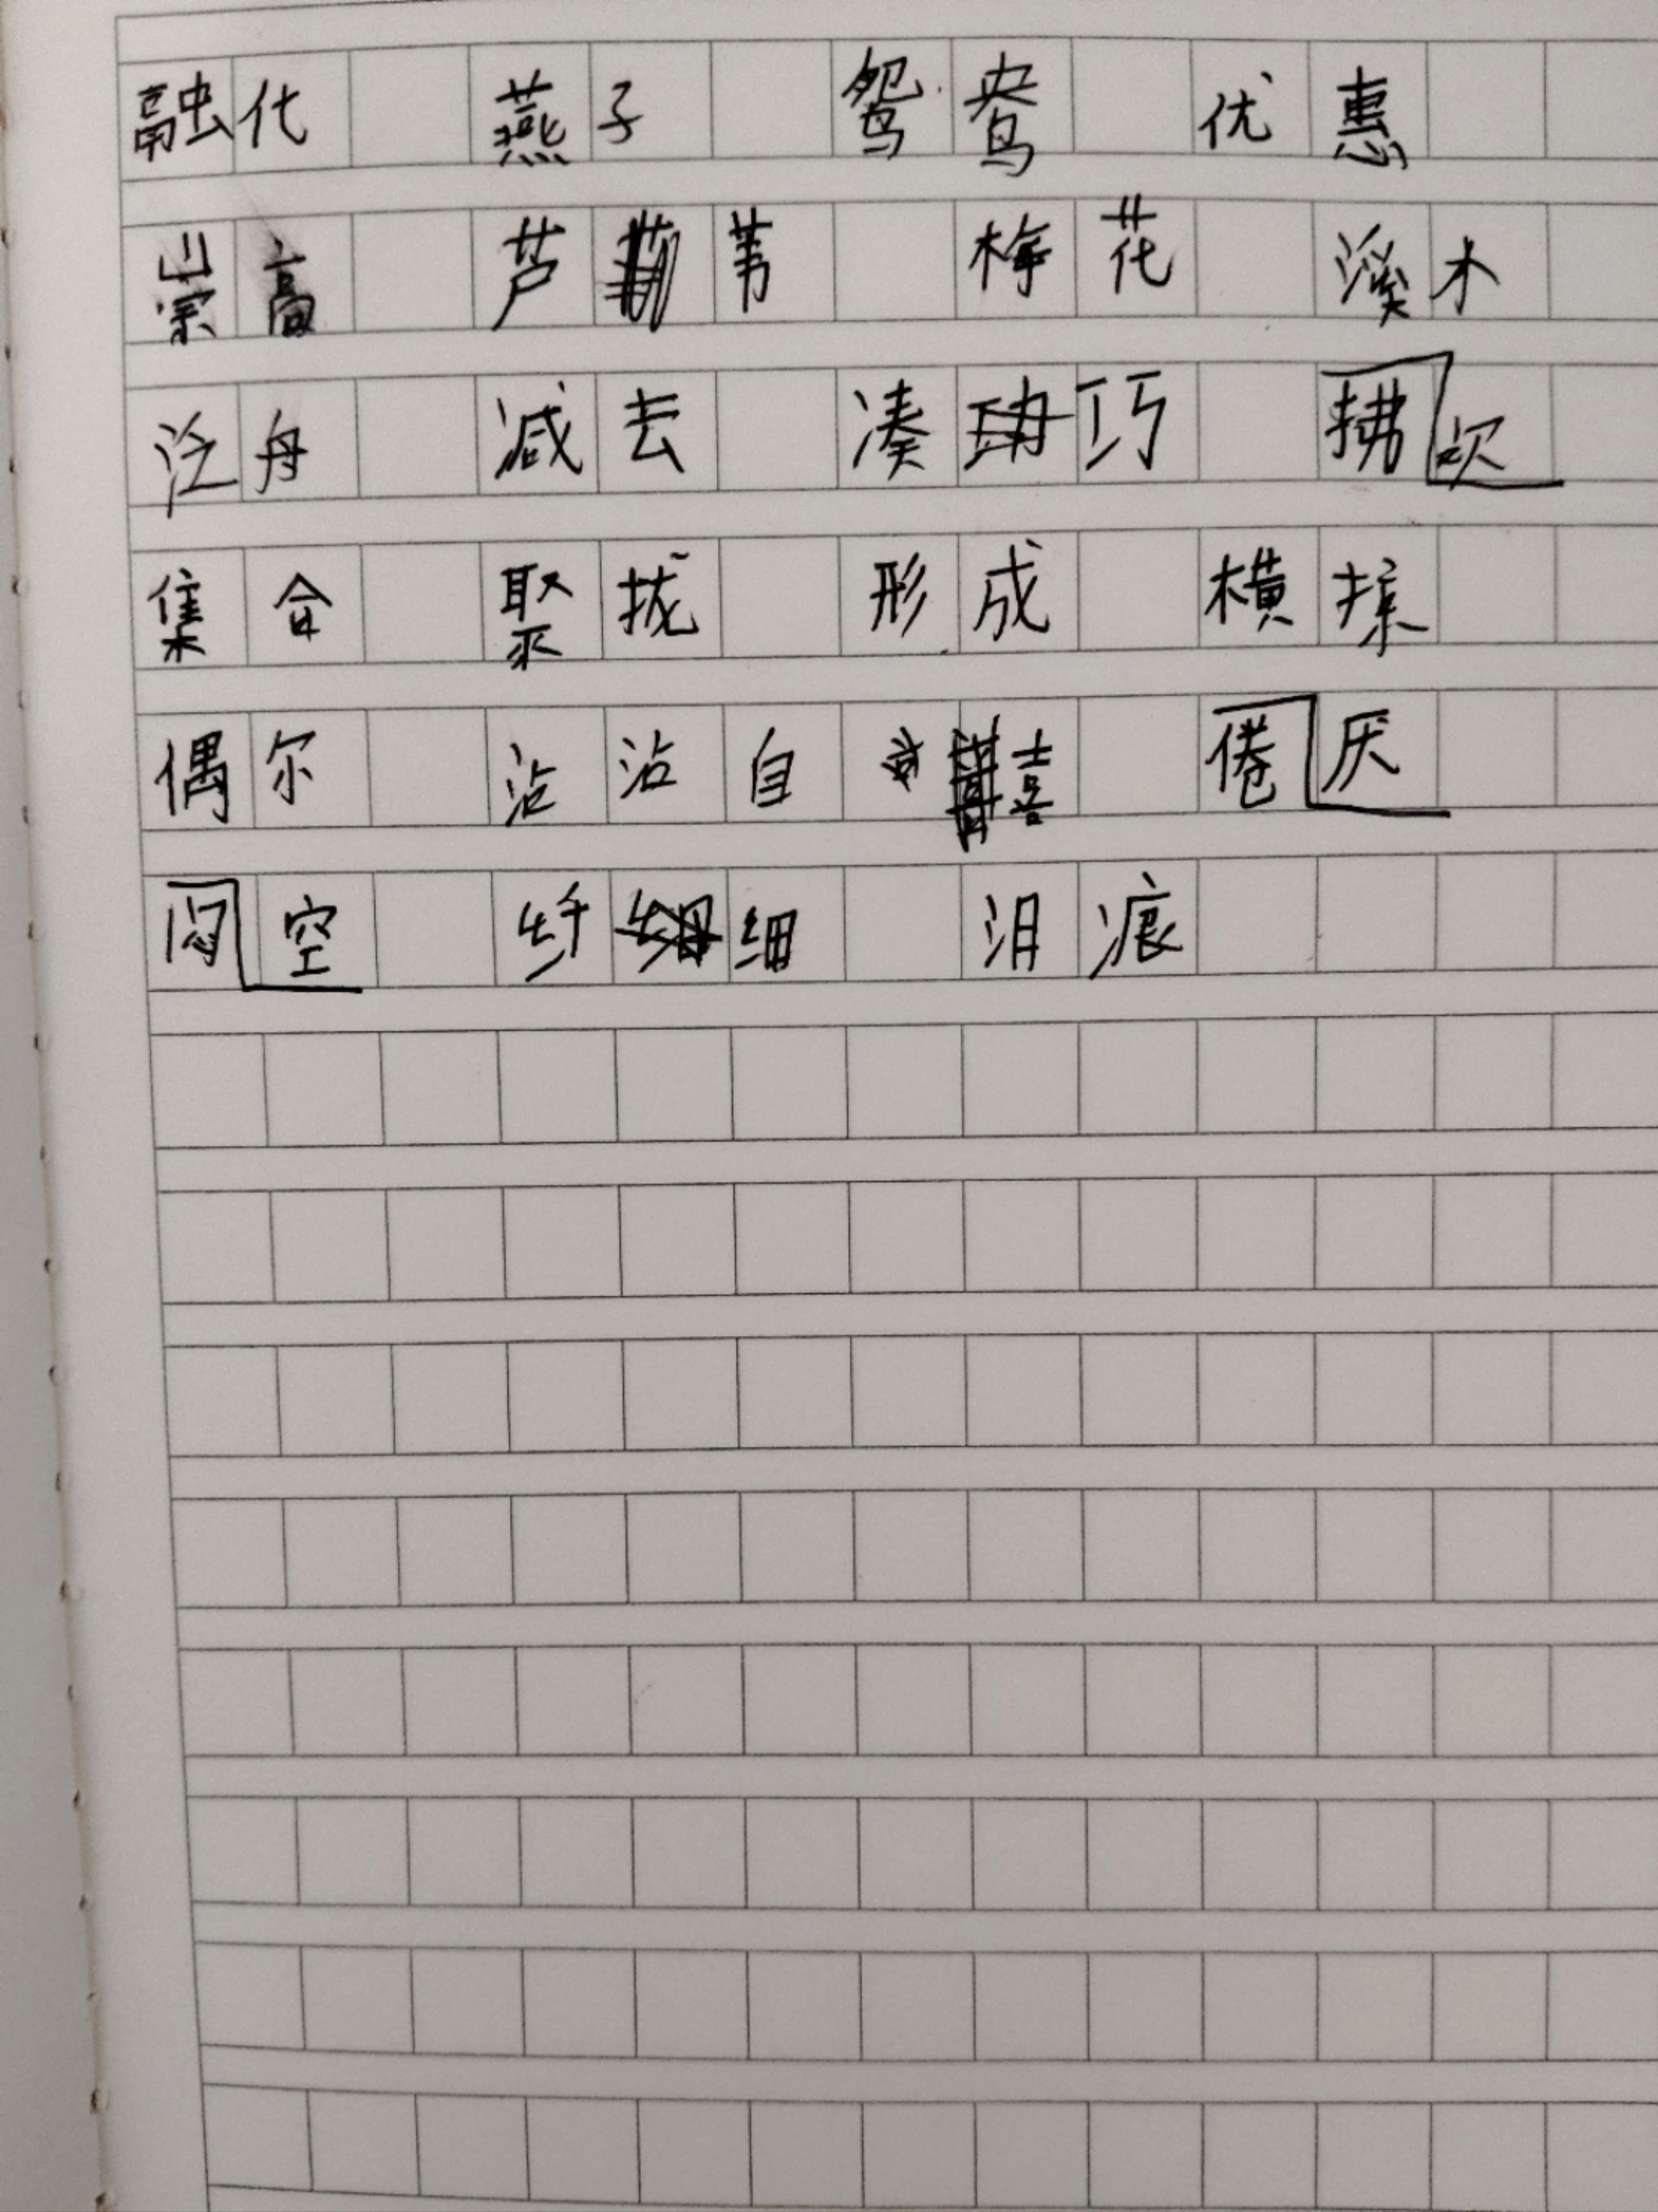 融化 燕子 鸳鸯 优惠
崇高 芦苇 梅花 溪水
泛舟 减去 凑巧 拂 吹
集合 聚拢 形成 横掠
偶尔 沾沾自喜 倦厌
闷空 纤细 泪痕